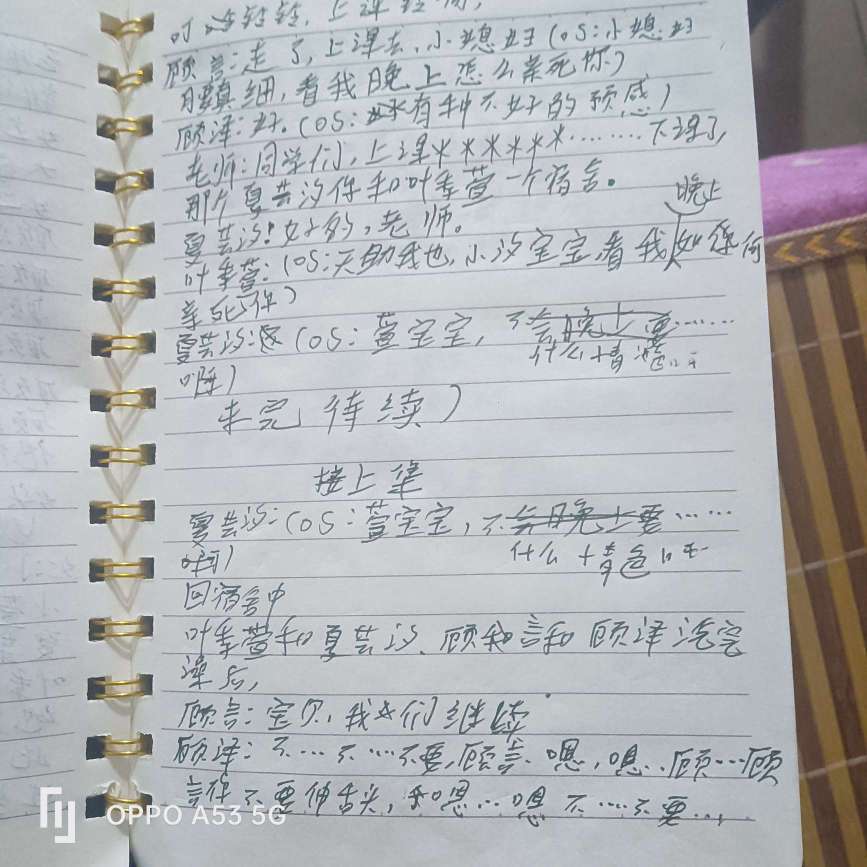 叮铃铃铃,上课铃响,
顾言:走了,上课去,小媳妇(OS:小媳妇
真细,看我晚上怎么亲死你)
顾泽:好。(OS:有种不好的预感)
老师:同学们,上课******………下课了,
那个夏芸汐你和叶季萱一个宿舍。
夏芸汐:好的,老师。
晚上
叶季萱:(OS:天助我也,小汐宝宝看我如何
亲死你)
夏芸汐:(OS:萱宝宝,不会晚上要……
什么+青
吧)
未完待续)
接上集
夏芸汐:(OS:萱宝宝,不会晚上要……
什么+青色
吧)
回宿舍中
叶季萱和夏芸汐、顾言和顾泽洗完
澡后,
顾言:宝贝,我们继续
顾泽:不……不……不要,顾言、嗯,嗯…顾…顾
言你不要伸舌头,嗯…嗯不……不要…,
OPPO A53 5G